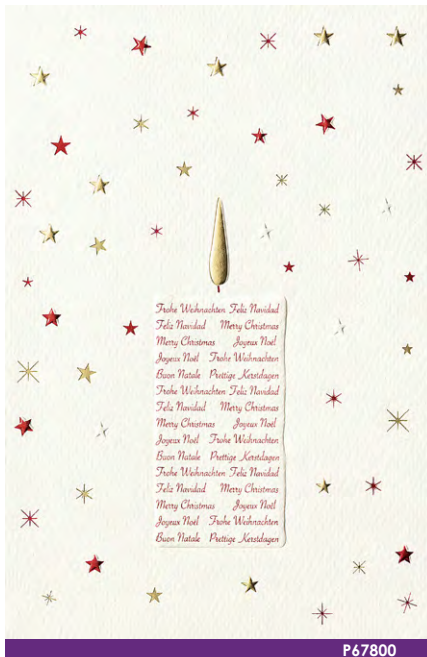 Frohe Weihnachten Feliz Navidad
Feliz Navidad Merry Christmas
Merry Christmas Joyeux Noël
Joyeux Noël Frohe Weihnachten
Buon Natale Prettige Kerstdagen
Frohe Weihnachten Feliz Navidad
Feliz Navidad Merry Christmas
Merry Christmas Joyeux Noël
Joyeux Noël Frohe Weihnachten
Buon Natale Prettige Kerstdagen
Frohe Weihnachten Feliz Navidad
Feliz Navidad Merry Christmas
Merry Christmas Joyeux Noël
Joyeux Noël Frohe Weihnachten
Buon Natale Prettige Kerstdagen
P67800